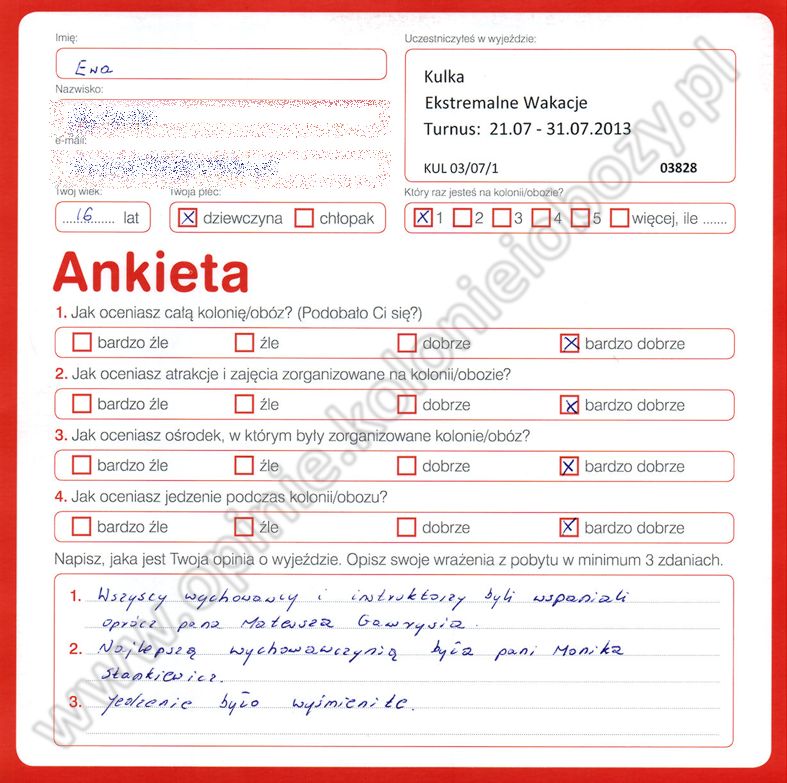 Imię:
Ewa
Nazwisko:
e-mail:
Twój wiek:
16 lat
Twoja płeć:
dziewczyna chłopak
Uczestniczyłeś w wyjeździe:
Kulka
Ekstremalne Wakacje
Turnus: 21.07 - 31.07.2013
KUL 03/07/1 03828
Który raz jesteś na kolonii/obozie?
1 2 3 4 5 więcej, ile .......
Ankieta
1. Jak oceniasz całą kolonię/obóz? (Podobało Ci się?)
bardzo źle źle dobrze bardzo dobrze
2. Jak oceniasz atrakcje i zajęcia zorganizowane na kolonii/obozie?
bardzo źle źle dobrze bardzo dobrze
3. Jak oceniasz ośrodek, w którym były zorganizowane kolonie/obóz?
bardzo źle źle dobrze bardzo dobrze
4. Jak oceniasz jedzenie podczas kolonii/obozu?
bardzo źle źle dobrze bardzo dobrze
Napisz, jaka jest Twoja opinia o wyjeździe. Opisz swoje wrażenia z pobytu w minimum 3 zdaniach.
1. Wszyscy wychowawcy i instruktorzy byli wspaniali
oprócz pana Mateusza Gawrysia.
2. Najlepszą wychowawczynią była pani Monika
Stankiewicz.
3. Jedzenie było wyśmienite.
www.opinie.kolonieiobozy.pl